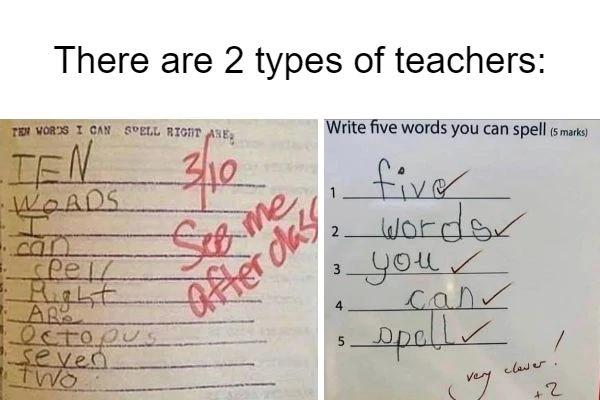 There are 2 types of teachers:
TEN WORDS I CAN SPELL RIGHT ARE:
TEN
WORDS
I
can
spell
Right
ARe
octopus
seven
Two
3/10
See me
after class
Write five words you can spell (5 marks)
1 five
2 words
3 you
4 can
5 spell
very clever!
+2